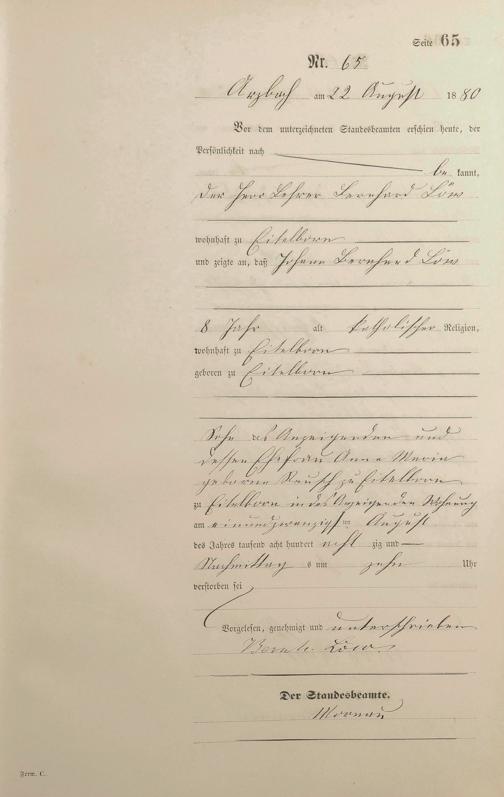 Seite 65
Nr. 65
Arzbach am 22 August 1880
Vor dem unterzeichneten Standesbeamten erschien heute, der
Persönlichkeit nach
bekannt,
der Herr Lehrer Bernhard Löw
wohnhaft zu Eitelborn
und zeigte an, daß Johann Bernhard Löw
8 Jahr alt katholischer Religion,
wohnhaft zu Eitelborn
geboren zu Eitelborn
Sohn des Anzeigenden und
dessen Ehefrau Anna Maria
geborne Reusch zu Eitelborn
zu Eitelborn in des Anzeigenden Wohnung
am einundzwanzigsten August
des Jahres tausend acht hundert achtzig und
Nachmittags um zehn Uhr
verstorben sei
Vorgelesen, genehmigt und unterschrieben
Bernh. Löw.
Der Standesbeamte.
Form. C.